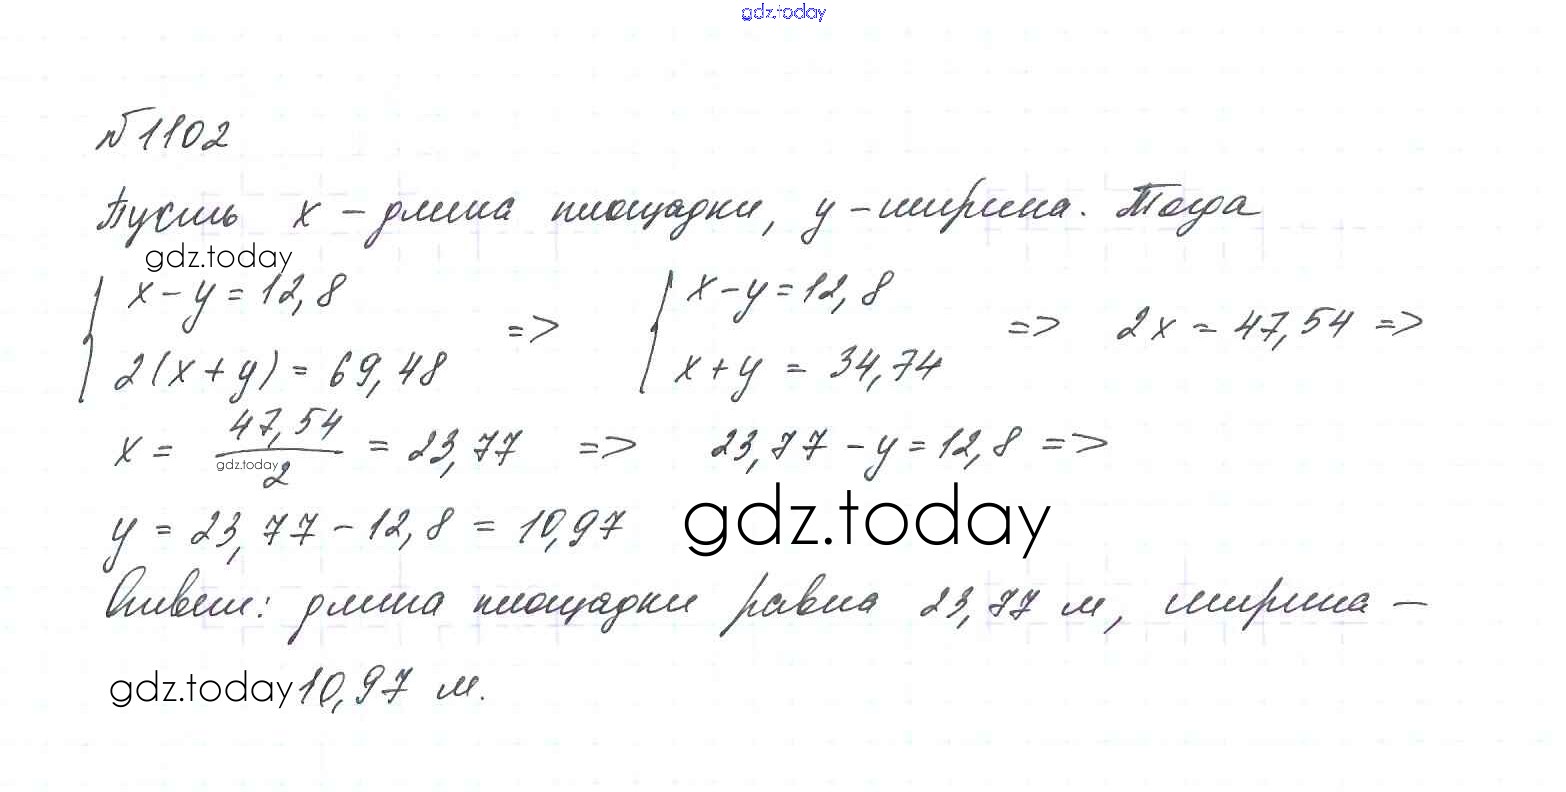 gdz.today
№1102
Пусть x – длина площадки, y – ширина. Тогда
gdz.today
{ x – y = 12,8 => { x – y = 12,8 => 2x = 47,54 =>
2(x + y) = 69,48 x + y = 34,74
x = 47,54 / 2 = 23,77 => 23,77 – y = 12,8 =>
gdz.today
y = 23,77 – 12,8 = 10,97 gdz.today
Ответ: длина площадки равна 23,77 м, ширина –
gdz.today 10,97 м.